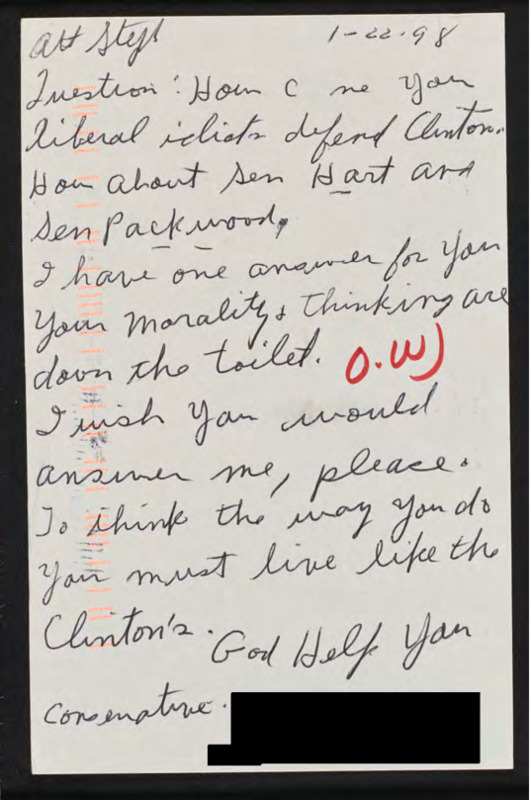 Att Steph 1-22-98
Question: How C me You
liberal idiots defend Clinton.
How about Sen Hart and
Sen Packwood,
I have one answer for You
Your Morality & thinking are
down the toilet. O.W)
I wish You would
answer me, please.
To think the way You do
You must live like the
Clinton's. God Help You
Conservative.